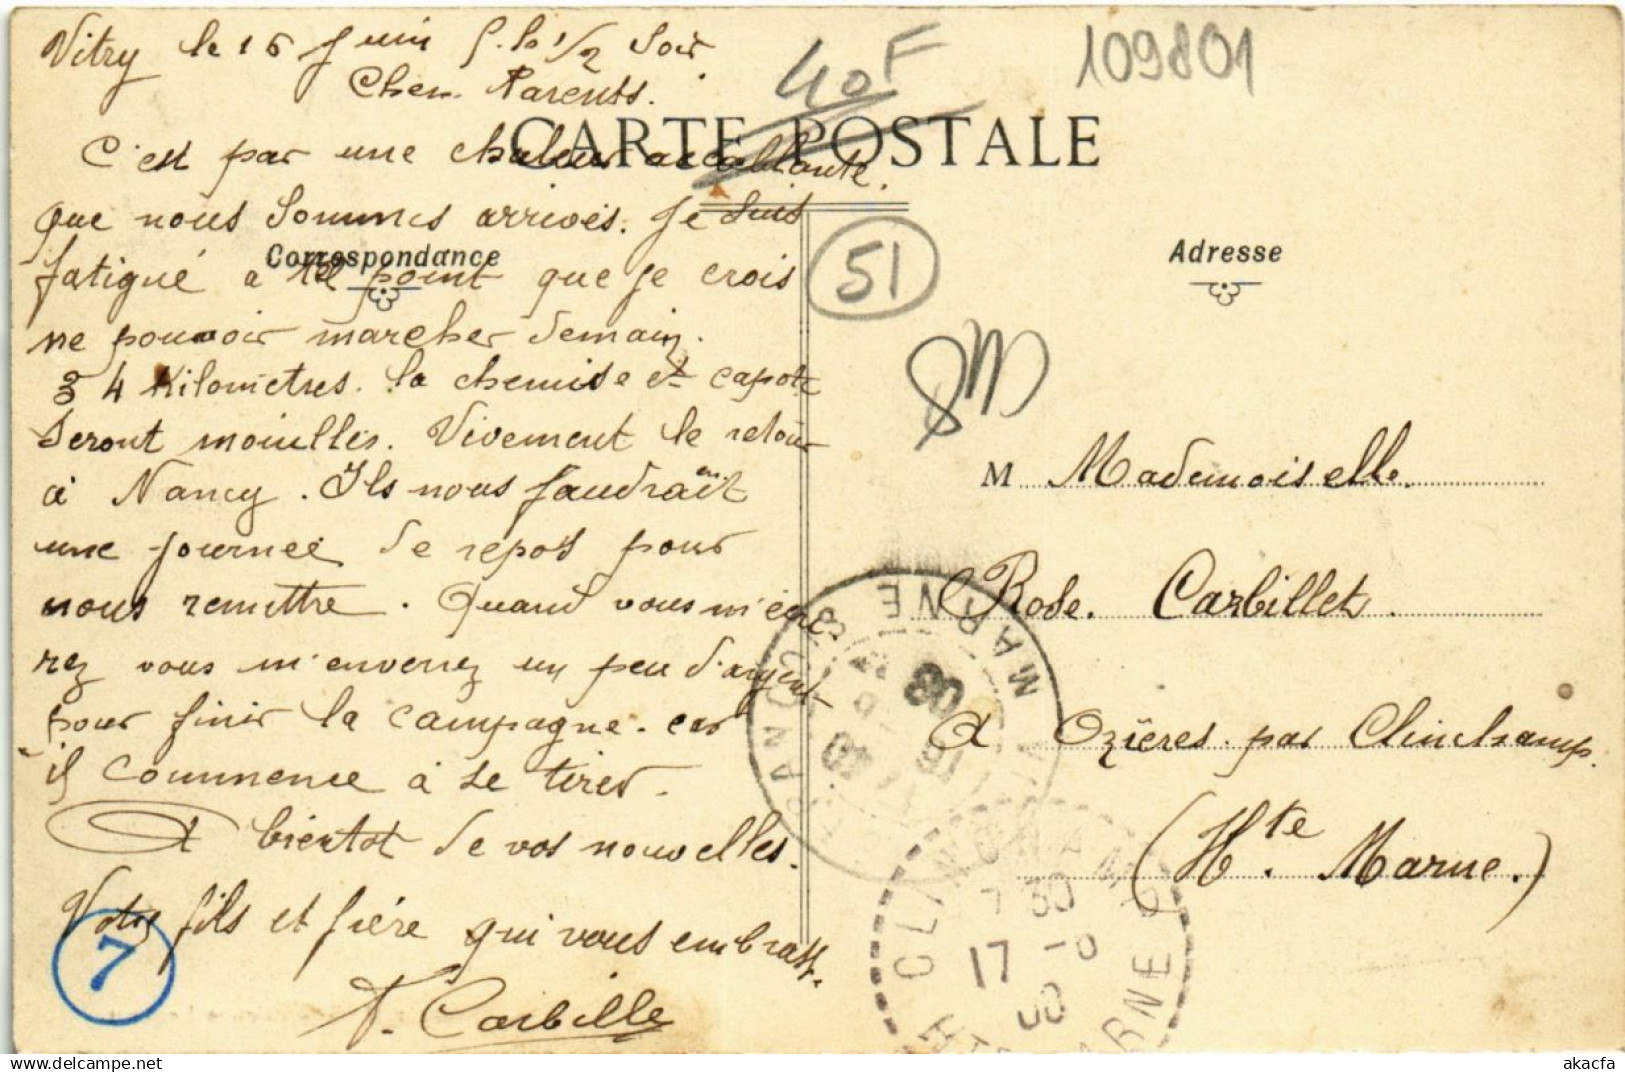 Vitry le 16 Juin 5 h 1/2 Soir
Chers Parents.
C'est par une chaleur accablante
que nous Sommes arrivés. Je suis
fatigué à tel point que je crois
ne pouvoir marcher demain.
3 4 Kilomètres. la chemise et capote
Seront mouillés. Vivement le retour
à Nancy. Ils nous faudrait
une journée de repos pour
nous remettre. Quand vous m'écri-
rez vous m'enverrez un peu d'argent
pour finir la campagne. car
il commence à se tirer.
A bientot de vos nouvelles.
Votre fils et frère qui vous embrasse.
Carbille
7
CARTE POSTALE
Correspondance
Adresse
40F
109801
51
M Mademoiselle.
Rose. Carbillet.
A Ozières. par Clinchamp.
(Hte. Marne.)
MARNE
08
CLINCHAMP
7 30
17 -6
08
Hte MARNE
akacfa